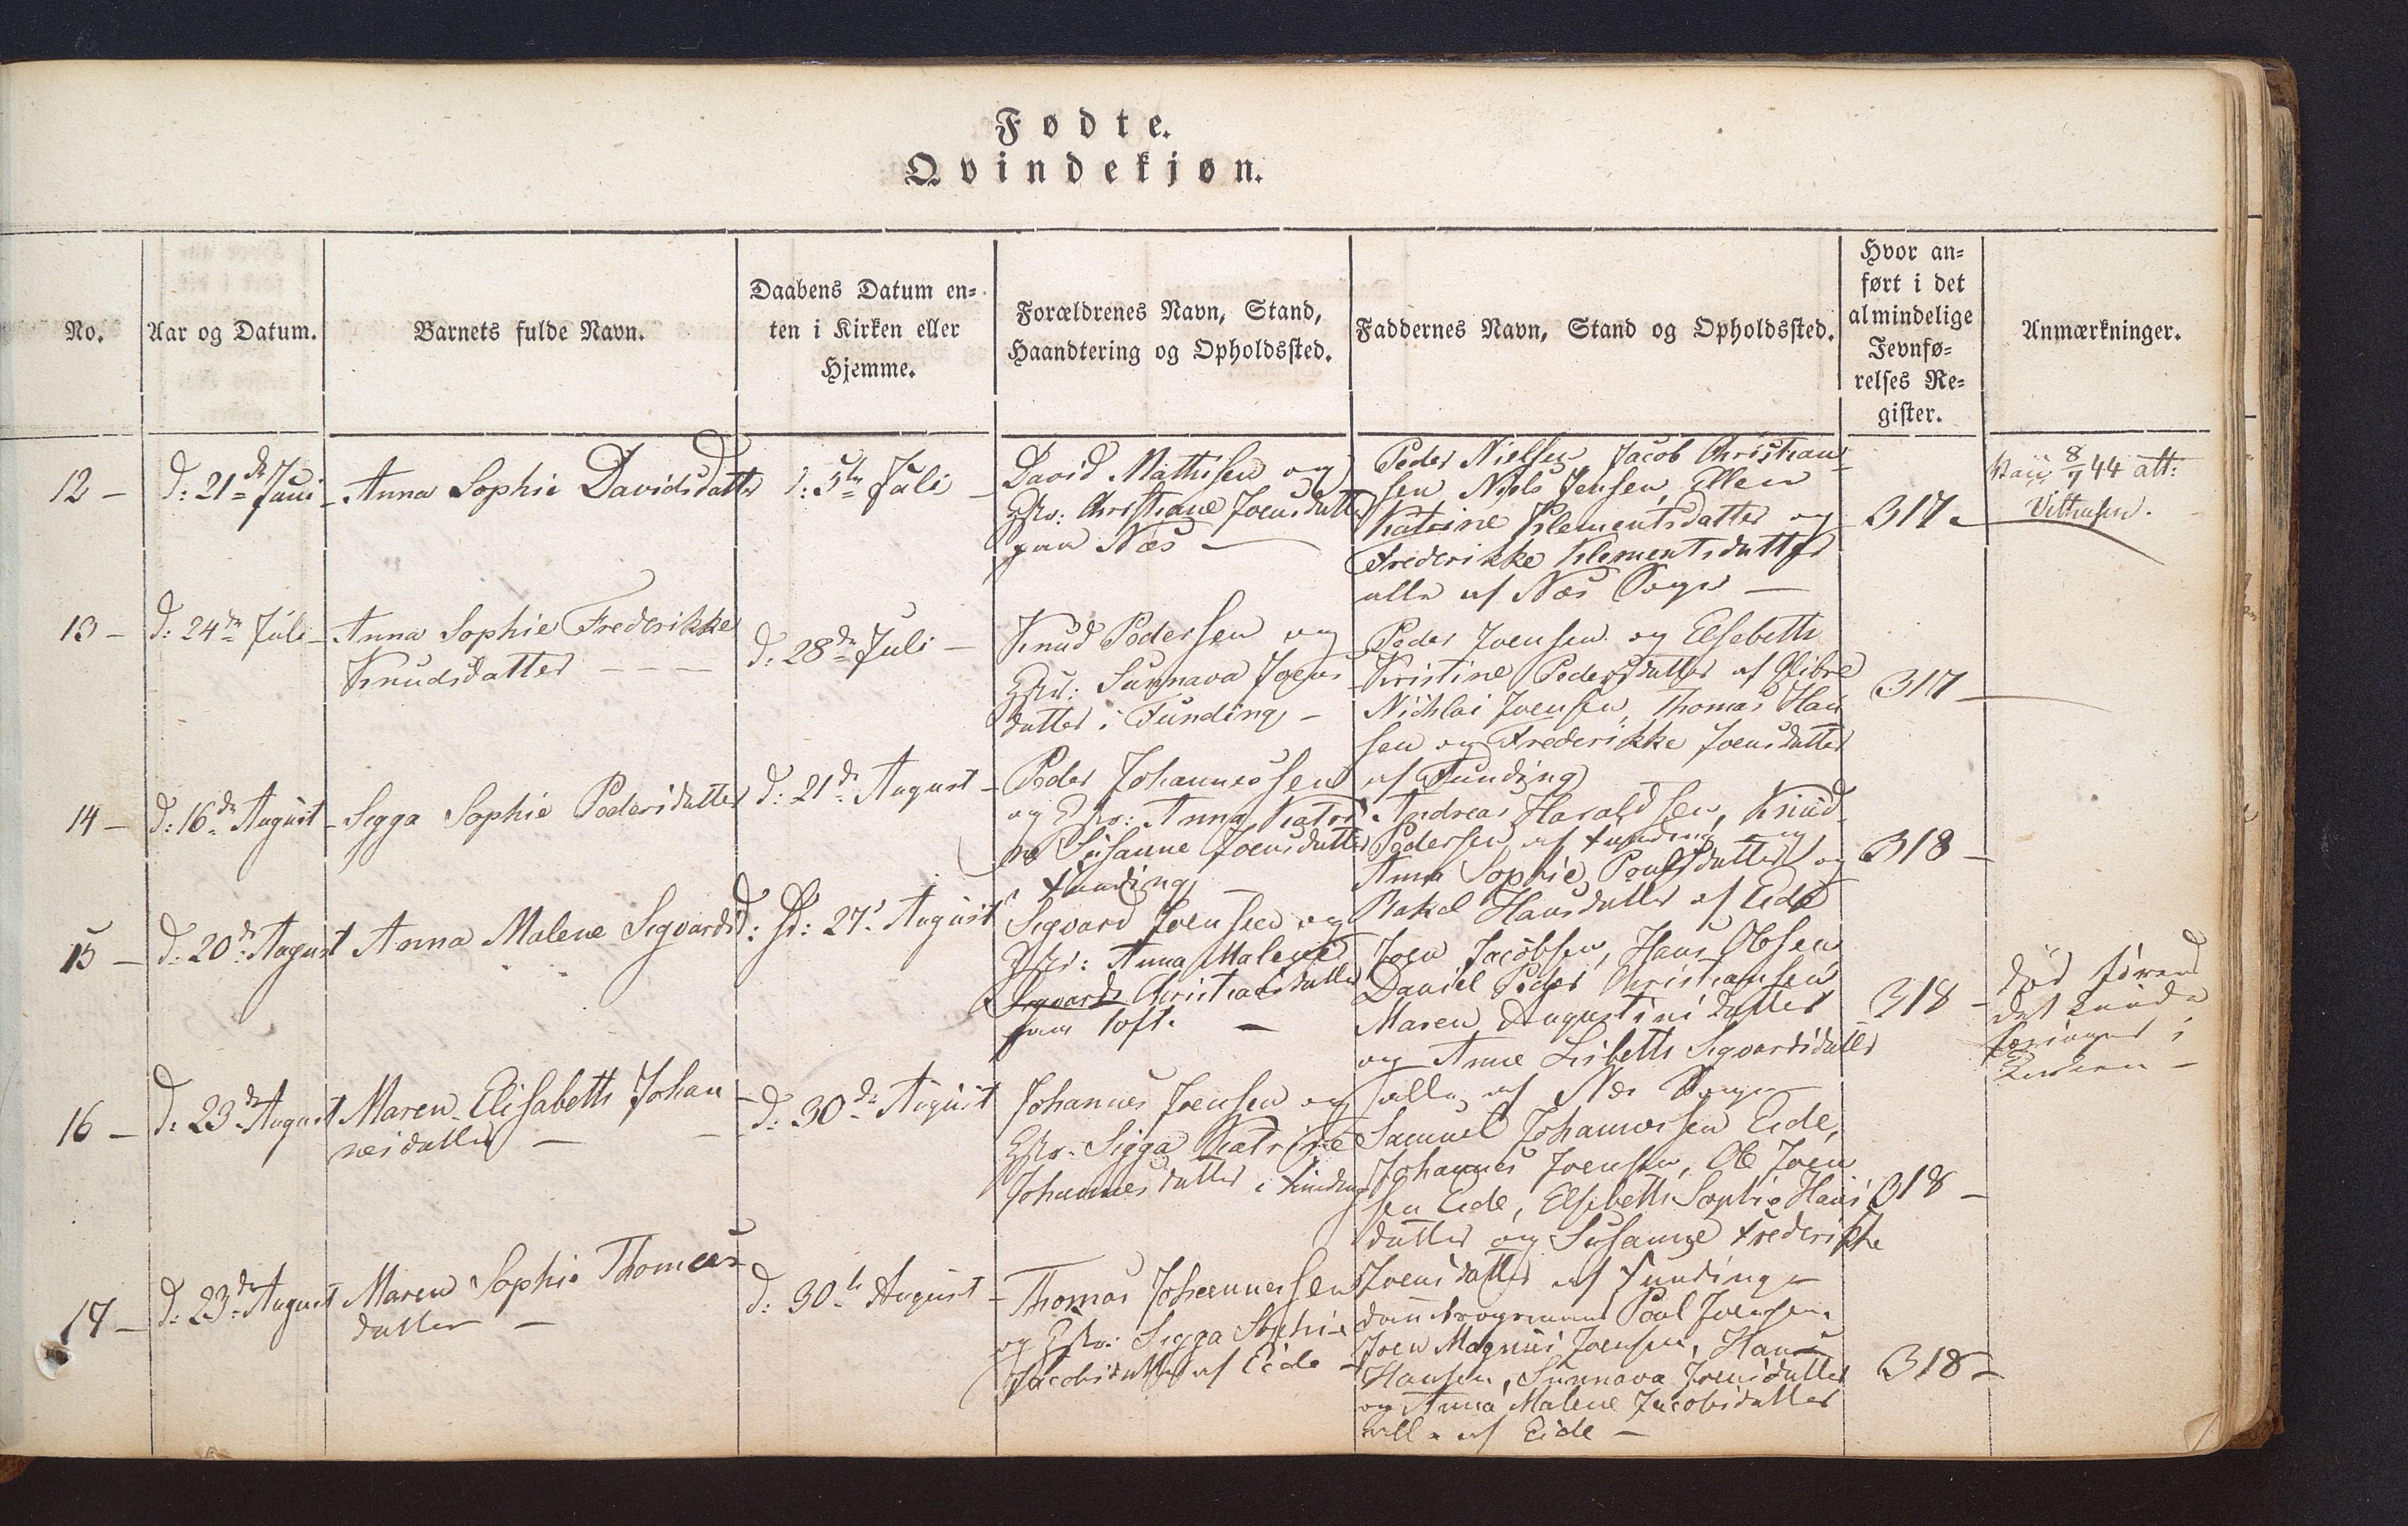 Fødte.
Qvindekjøn.
No.
Aar og Datum.
Barnets fulde Navn.
Daabens Datum en-
ten i Kirken eller
Hjemme.
Forældrenes Navn, Stand,
Haandtering og Opholdssted.
Faddernes Navn, Stand og Opholdssted.
Hvor an-
ført i det
almindelige
Jevnfø-
relses Re-
gister.
Anmærkninger.
12 –
d: 21de Juni
Anna Sophie Davidsdatter
d: 5te Juli –
David Mathisen og
Hstr: Christiane Joensdatter
paa Næs –
Peder Nielsen, Jacob Christian-
sen, Niels Jensen, Ellen
Katrine Klementsdatter og
Frederikke Klementsdatter
alle af Næs Sogn –
317 –
8/7 44 att:
13 –
d: 24de Juli –
Anna Sophie Frederikke
Knudsdatter – – –
d: 28de Juli –
Knud Pedersen og
Hstr: Sunnava Joens
datter i Funding –
Peder Joensen og Elsebeth
Kristine Pedersdatter af Glibre
Nichlai Joensen, Thomas Han
sen og Frederikke Joensdatter
af Funding
317 –
14 –
d: 16de August –
Sigga Sophie Pedersdatter
d: 21de August –
Peder Johannessen
og Hstr: Anna Katri
ne Susanne Joensdatter
i Funding –
Andreas Haraldsen, Knud
Pedersen af Funding og
Anna Sophie Poulsdatter og
Rakel Hansdatter af Eide
318 –
15 –
d: 20de August
Anna Malene Sigvardsd:
d: 27. August
Sigvard Joensen og
Hstr: Anna Malene
Sigvards Christiansdatter
paa Toft. –
Joen Jacobsen, Hans Olesen
Daniel Peder Christiansen
Maren Augustinidatter
og Anne Lisbeth Sigvardsdatter
alle af Næs Sogn
318 –
død førend
det kunde
bringes i
Kirken –
16 –
d: 23de August
Maren Elisabeth Johan
nesdatter –
d: 30de August
Johannes Joensen og
Hstr: Sigga Katrine
Johannesdatter i Funding
Samuel Johannessen Eide,
Johannes Joensen, Ole Joen
sen Eide, Elsebeth Sophie Hans
datter og Susanne Frederikke
Joensdatter af Funding –
318 –
17 –
d: 23de August
Maren Sophie Thomas
datter –
d: 30te August –
Thomas Johannessen
og Hstr: Sigga Sophie
Jacobsdatter af Eide –
Dannebrogsmand Poul Joensen,
Joen Magnus Joensen, Hans
Hansen, Sunnava Joensdatter
og Anna Malene Jacobsdatter
alle af Eide –
318 –